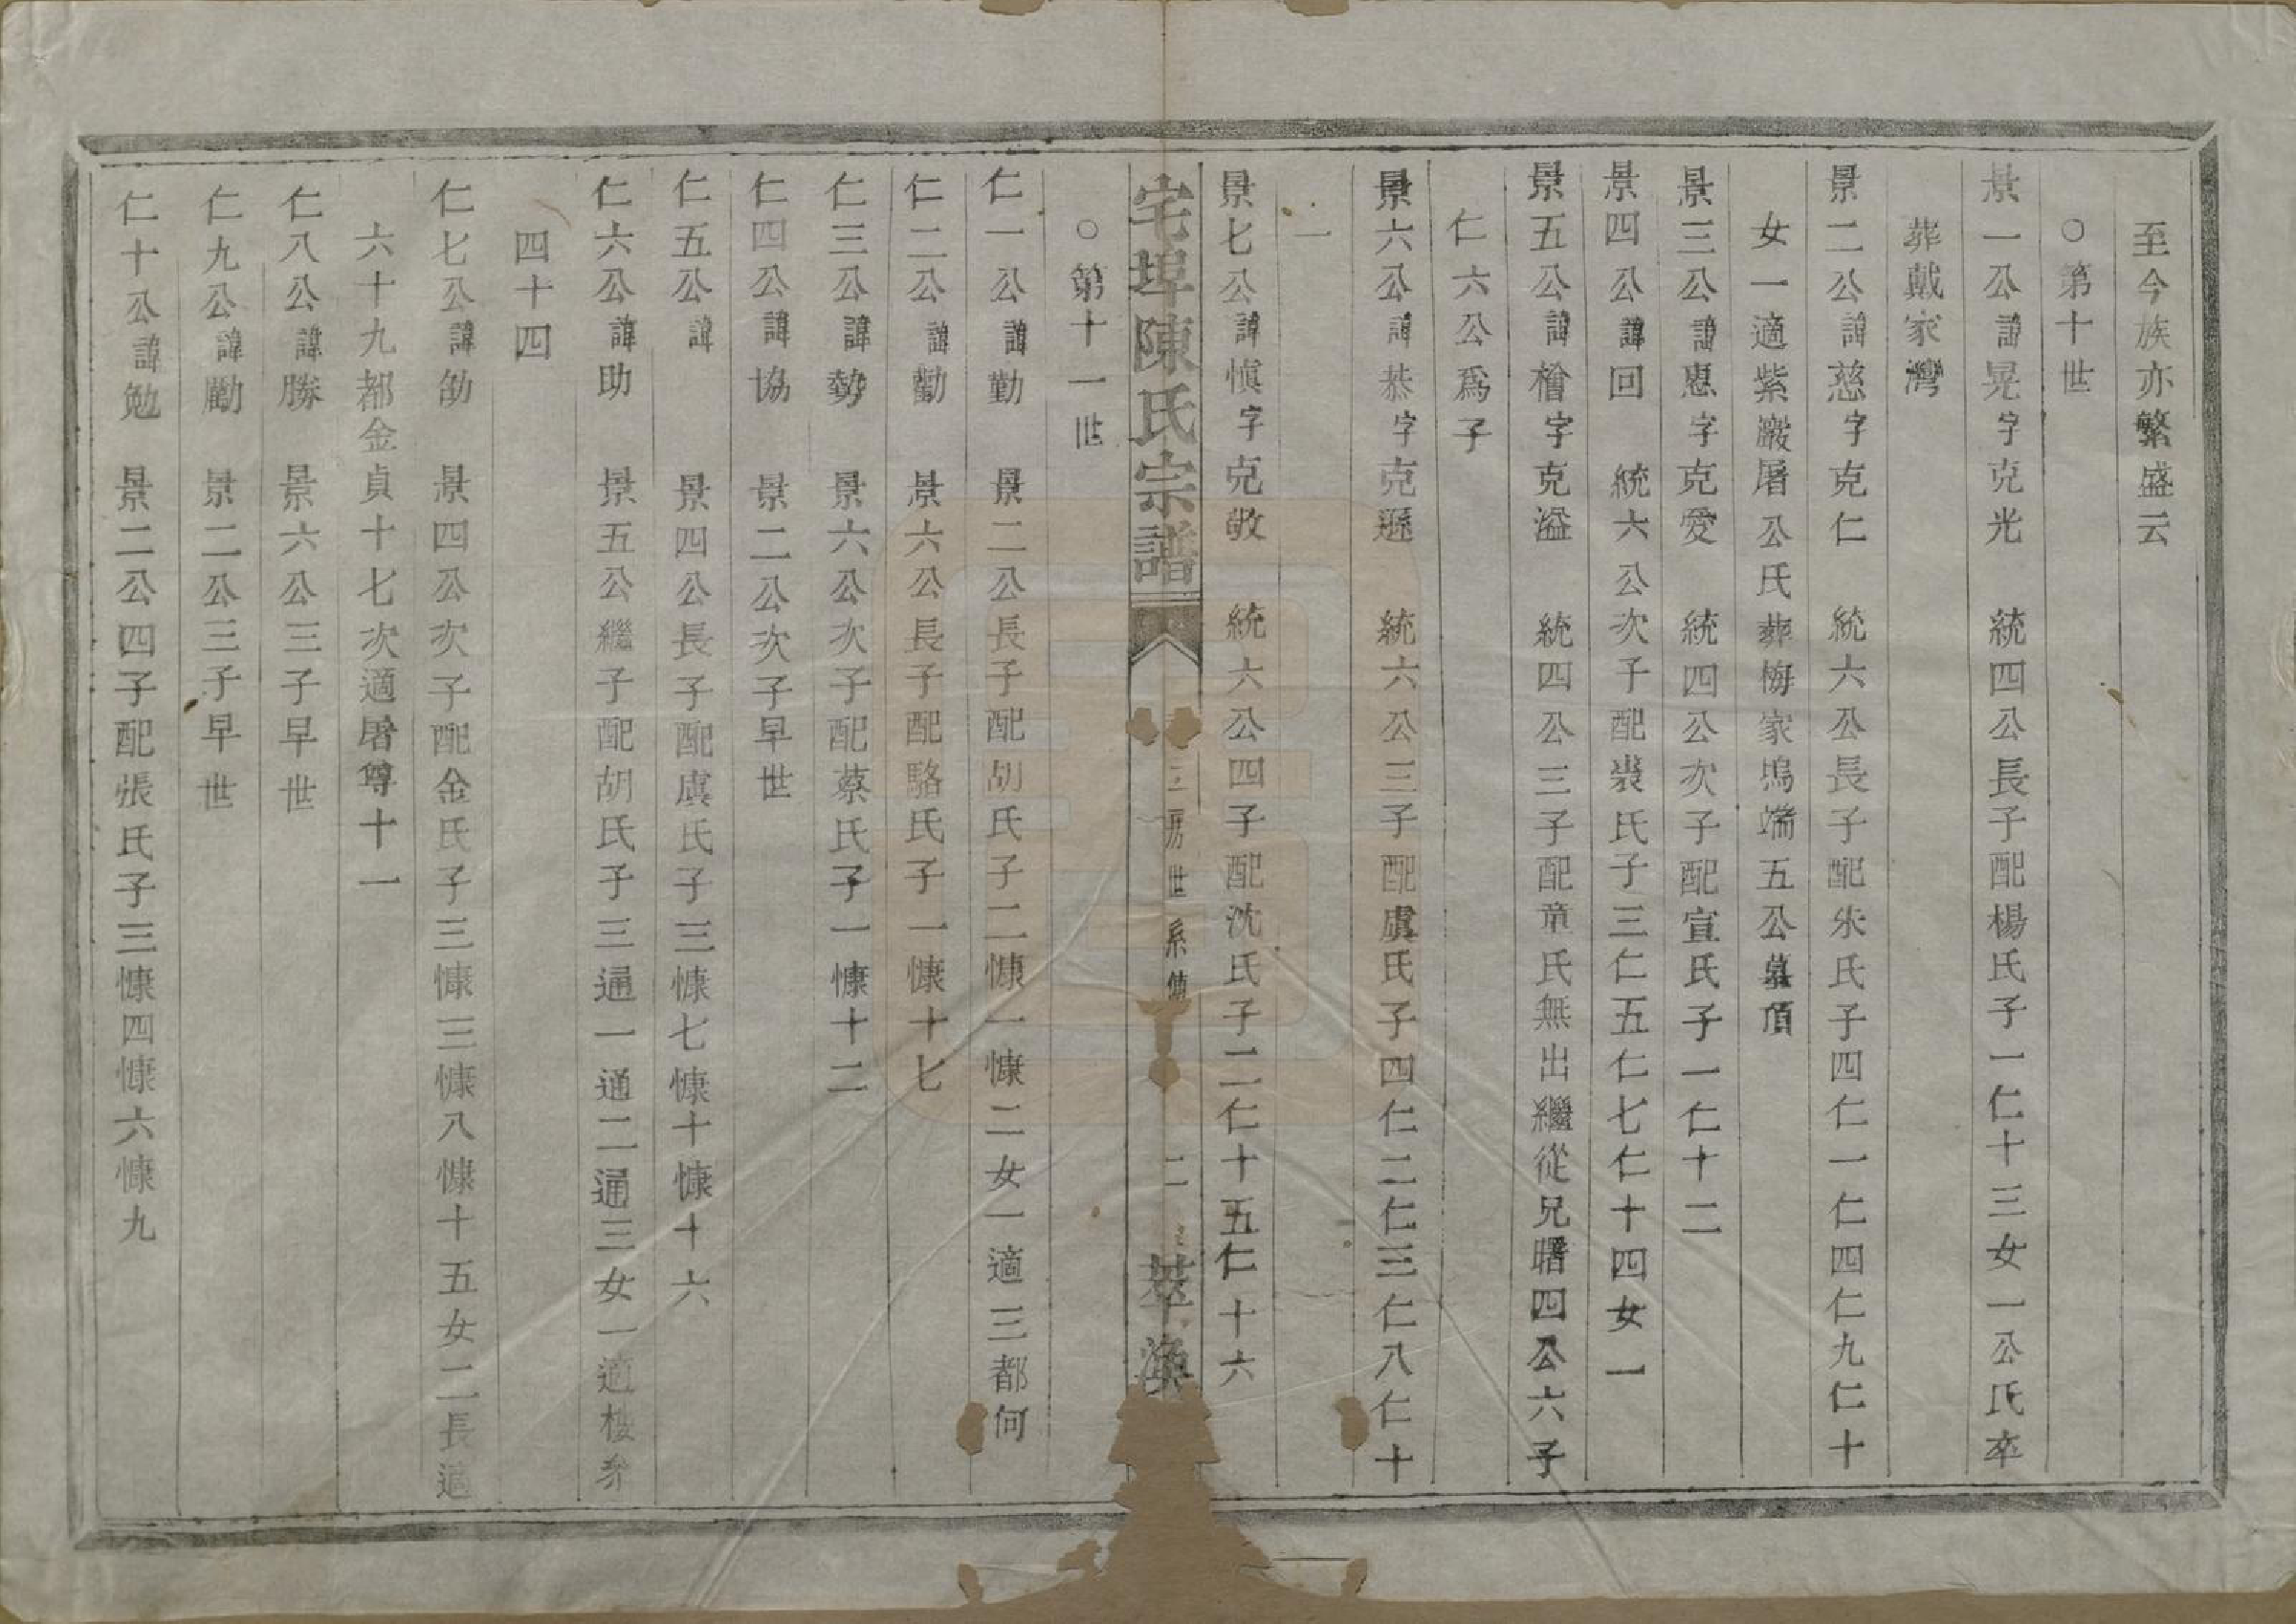 至今族亦繁盛云
○第十世
景一公諱晃字克光　統四公長子配楊氏子一仁十三女一公氏卒
葬戴家灣
景二公諱慈字克仁　統六公長子配朱氏子四仁一仁四仁九仁十
女一適紫巖屠公氏葬梅家塢端五公墓頂
景三公諱惠字克愛　統四公次子配宣氏子一仁十二
景四公諱回　統六公次子配裘氏子三仁五仁七仁十四女一
景五公諱檜字克溢　統四公三子配章氏無出繼從兄曙四公六子
仁六公爲子
景六公諱恭字克遜　統六公三子配虞氏子四仁二仁三仁八仁十
一
景七公諱慎字克敬　統六公四子配沈氏子二仁十五仁十六
宅埠陳氏宗譜　三房世系傳　二　萃渙
○第十一世
仁一公諱勤　景二公長子配胡氏子二慷一慷二女一適三都何
仁二公諱勸　景六公長子配駱氏子一慷十七
仁三公諱勢　景六公次子配蔡氏子一慷十二
仁四公諱協　景二公次子早世
仁五公諱　景四公長子配虞氏子三慷七慷十慷十六
仁六公諱助　景五公繼子配胡氏子三通一通二通三女一適樓叅
四十四
仁七公諱劬　景四公次子配金氏子三慷三慷八慷十五女二長適
六十九都金貞十七次適屠尊十一
仁八公諱勝　景六公三子早世
仁九公諱勵　景二公三子早世
仁十公諱勉　景二公四子配張氏子三慷四慷六慷九